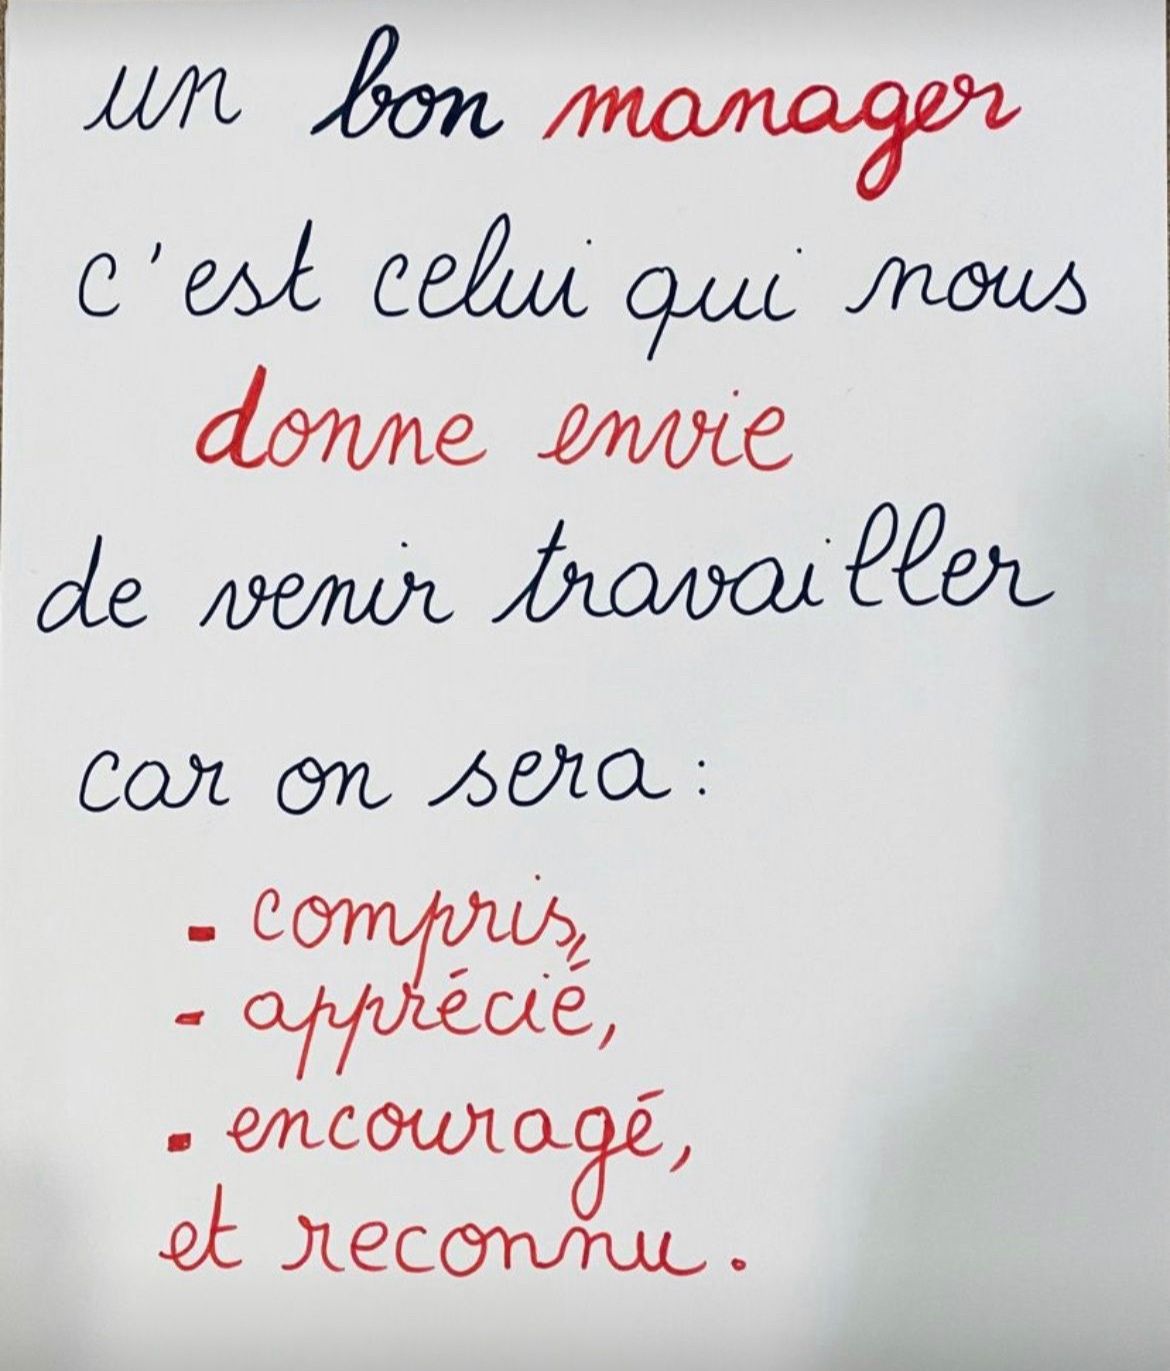 un bon manager
c'est celui qui nous
donne envie
de venir travailler
car on sera :
- compris,
- apprécié,
- encouragé,
et reconnu.